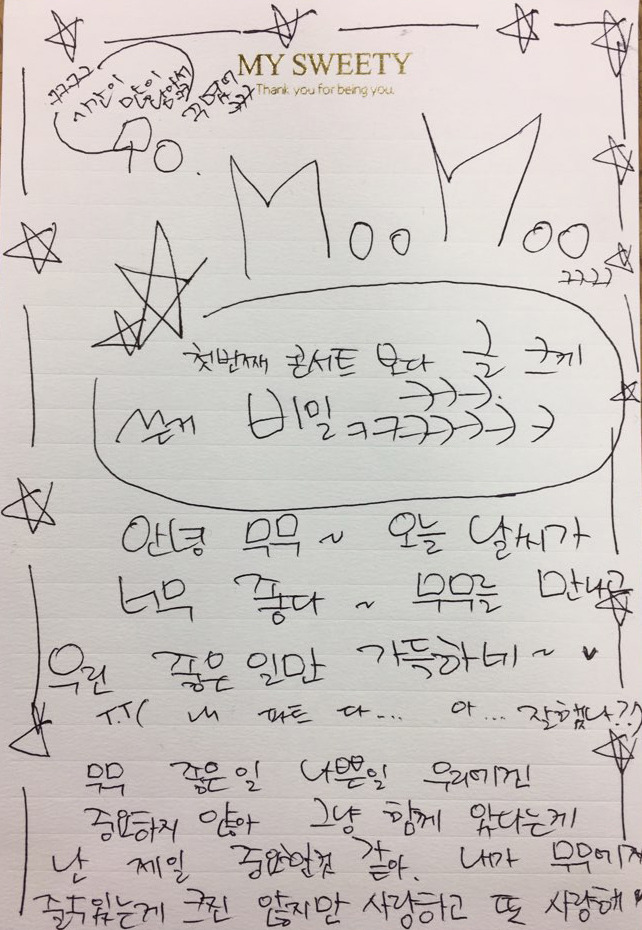 MY SWEETY
Thank you for being you.
ㅋㅋㅋㅋ
시간이 많이
To.
MooMoo
ㅋㅋㅋㅋ
첫번째 콘서트 보다 글 크게
ㅋㅋㅋ
쓴게 비밀 ㅋㅋㅋㅋㅋㅋㅋ
안녕 무무 ~ 오늘 날씨가
너무 좋다 ~ 무무를 만나고
우린 좋은 일만 가득하네 ~ ♥
T.T ( 내 파트 다... 아... 잘했나?)
무무 좋은일 나쁜일 우리에겐
중요하지 않아 그냥 함께 있다는게
난 제일 중요한것 같아. 내가 무무에게
줄수있는게 크진 않지만 사랑하고 또 사랑해